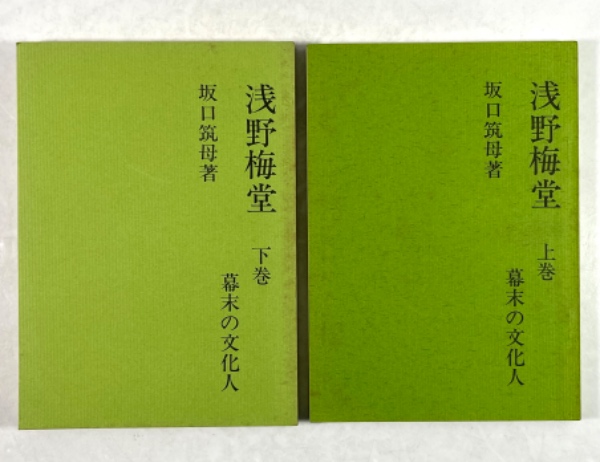 浅野梅堂 上巻
幕末の文化人
坂口筑母著
浅野梅堂 下巻
幕末の文化人
坂口筑母著